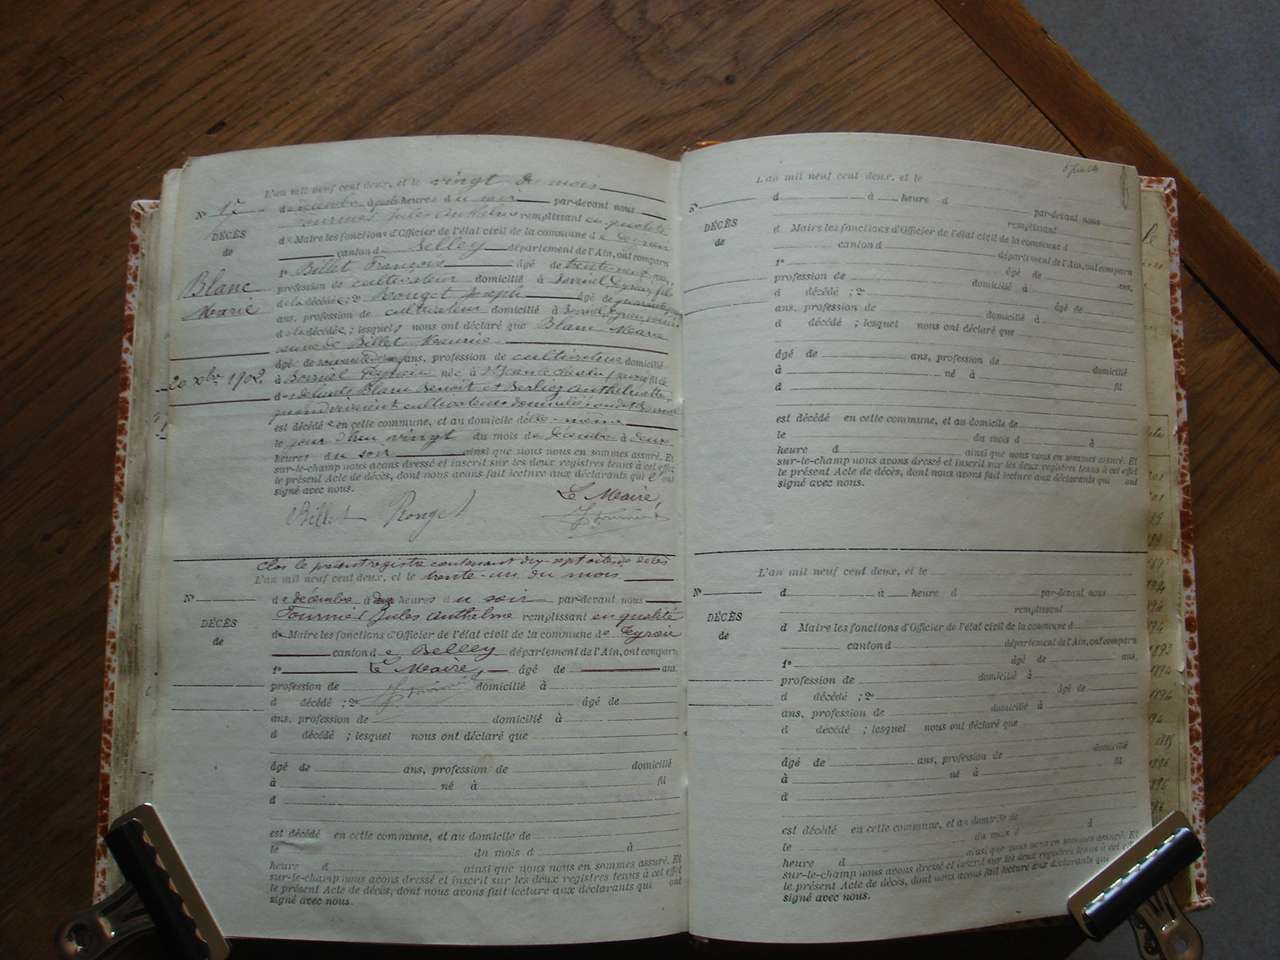 L'an mil neuf cent deux, et le vingt du mois
N° 17 de décembre à heures du soir par-devant nous
Fournier Jules Anthelme remplissant en qualité
DÉCÈS
de
de Maire les fonctions d'Officier de l'état civil de la commune de Peyrieu
canton de Belley département de l'Ain, ont comparu
1° Billet François âgé de trente neuf ans,
Blanc
Marie
profession de cultivateur domicilié à
de la décédée; 2° Rouget Joseph âgé de
ans, profession de cultivateur domicilié à
de la décédée; lesquels nous ont déclaré que Blanc Marie
de Billet Maurice
âgé de ans, profession de cultivateur domicilié
20 xbre 1902
à née à
de Blanc Benoit et Anthelmette
cultivateurs domiciliés
est décédée en cette commune, et au domicile
le jour d'hui vingt du mois de décembre à deux
heures du soir ainsi que nous nous en sommes assuré. Et
sur-le-champ nous avons dressé et inscrit sur les deux registres tenus à cet effet
le présent Acte de décès, dont nous avons fait lecture aux déclarants qui ont
signé avec nous.
Le Maire,
Billet Rouget
Clos le présent registre contenant dix sept actes
L'an mil neuf cent deux, et le trente-un du mois
N° de décembre à heures du soir par-devant nous
Fournier Jules Anthelme remplissant en qualité
DÉCÈS
de
de Maire les fonctions d'Officier de l'état civil de la commune de Peyrieu
canton de Belley département de l'Ain, ont comparu
1° Le Maire, âgé de ans,
profession de domicilié à
d décédé ; 2° âgé de
ans, profession de domicilié à
d décédé ; lesquel nous ont déclaré que
âgé de ans, profession de domicilié
à né à fil
d
est décédé en cette commune, et au domicile de
le du mois d à
heure d ainsi que nous nous en sommes assuré. Et
sur-le-champ nous avons dressé et inscrit sur les deux registres tenus à cet effet
le présent Acte de décès, dont nous avons fait lecture aux déclarants qui ont
signé avec nous.
L'an mil neuf cent deux, et le
N° d à heure d par-devant nous
remplissant
DÉCÈS
de
d Maire les fonctions d'Officier de l'état civil de la commune d
canton d département de l'Ain, ont comparu
1° âgé de ans,
profession de domicilié à
d décédé ; 2° âgé de
ans, profession de domicilié à
d décédé ; lesquel nous ont déclaré que
âgé de ans, profession de domicilié
à né à fil
d
est décédé en cette commune, et au domicile de
le du mois d à
heure d ainsi que nous nous en sommes assuré. Et
sur-le-champ nous avons dressé et inscrit sur les deux registres tenus à cet effet
le présent Acte de décès, dont nous avons fait lecture aux déclarants qui ont
signé avec nous.
L'an mil neuf cent deux, et le
N° d à heure d par-devant nous
remplissant
DÉCÈS
de
d Maire les fonctions d'Officier de l'état civil de la commune d
canton d département de l'Ain, ont comparu
1° âgé de ans,
profession de domicilié à
d décédé ; 2° âgé de
ans, profession de domicilié à
d décédé ; lesquel nous ont déclaré que
âgé de ans, profession de domicilié
à né à fil
d
est décédé en cette commune, et au domicile de
le du mois d à
heure d ainsi que nous nous en sommes assuré. Et
sur-le-champ nous avons dressé et inscrit sur les deux registres tenus à cet effet
le présent Acte de décès, dont nous avons fait lecture aux déclarants qui ont
signé avec nous.